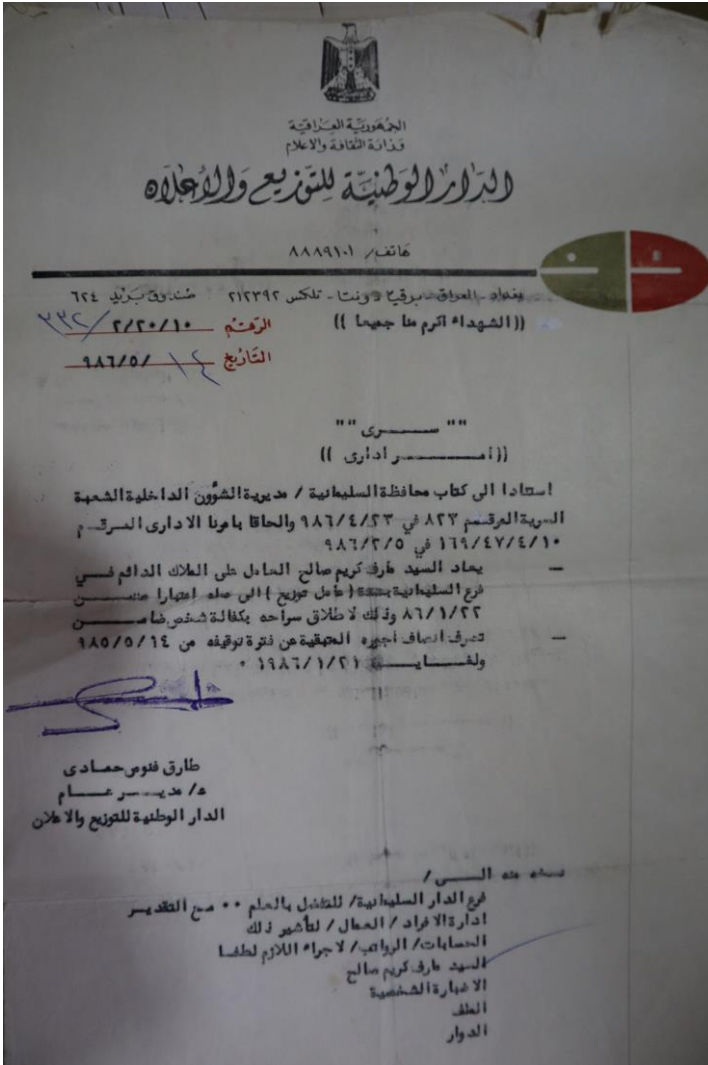 الجمهورية العراقية
وزارة الثقافة والاعلام
الدار الوطنية للتوزيع والاعلان
هاتف/ ٨٨٨٩١٠١
بغداد - العراق - برقيا ونتا - تلكس ٢١٢٣٩٢ صندوق بريد ٦٢٤
((الشهداء اكرم منا جميعا))
الرقم ٢/٢٠/١٠/ ٣٣٢
التاريخ ١٤/ ٩٨٦/٥
"" ســـرى ""
((أمـــر ادارى))
استنادا الى كتاب محافظة السليمانية / مديرية الشؤون الداخلية الشعبة
السرية المرقم ٨٢٣ في ٩٨٦/٤/٢٣ والحاقا بامرنا الادارى المرقم
١٦٩/٤٧/٤/١٠ في ٩٨٦/٢/٥
— يعاد السيد عارف كريم صالح العامل على الملاك الدائم فــي
فرع السليمانية (عامل توزيع) الى عمله اعتبارا مــن
٨٦/١/٢٢ وذلك لاطلاق سراحه بكفالة شخص ضامــن
— تصرف انصاف اجوره المتبقية عن فترة توقيفه من ٩٨٥/٥/١٤
ولغايـــة ١٩٨٦/١/٢١ ٠
طارق فنوص حمـادى
ع/ مديـــر عـــام
الدار الوطنية للتوزيع والاعلان
نسخه منه الـــى/
فرع الدار السليمانية/ للتفضل بالعلم ٠٠ مع التقديــر
ادارة الافراد / العمال / لتأشير ذلك
الحسابات/ الرواتب/ لاجراء اللازم لطفــا
السيد عارف كريم صالح
الاضبارة الشخصية
الملف
الدوار